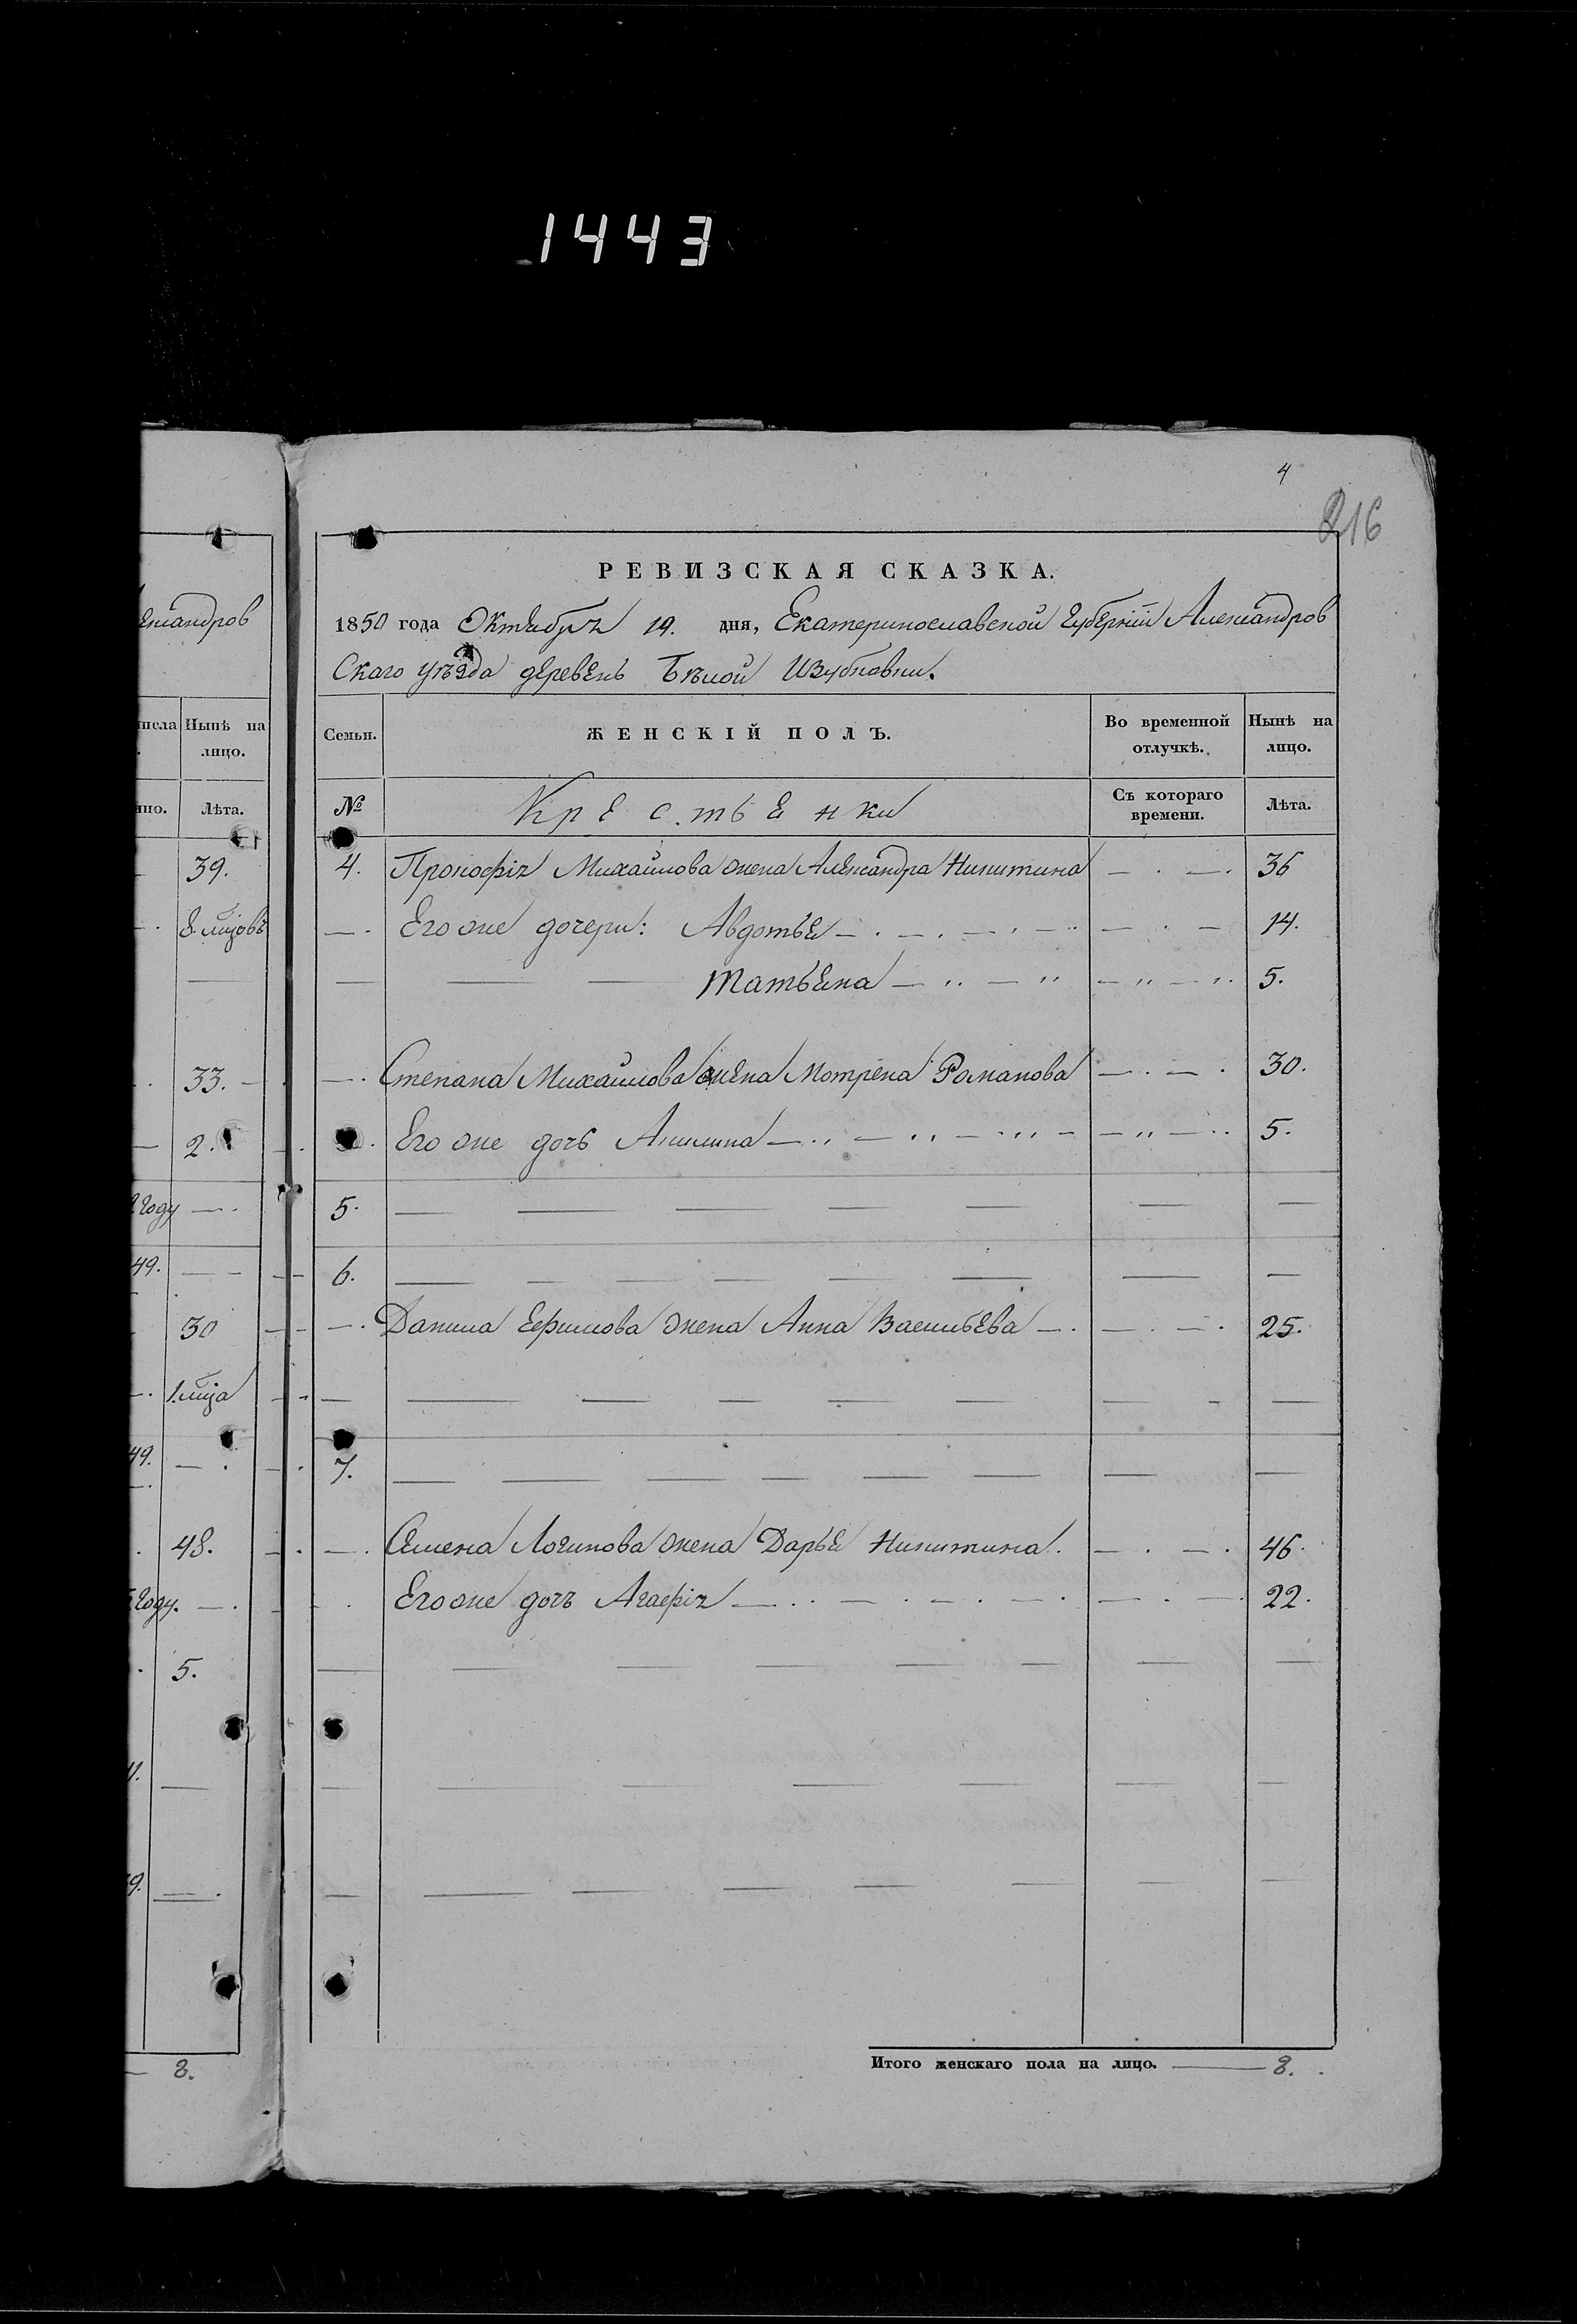 1443
4
216
РЕВИЗСКАЯ СКАЗКА.
1850 года Октября 19. дня, Екатеринославской Губернии Александров
Скаго уѣзда деревень Бѣлой
Семьи. ЖЕНСКІЙ ПОЛЪ. Во временной отлучкѣ. Нынѣ на лицо.
№ Крестьянки Съ котораго времени. Лѣта.
4. Прокофія Михайлова жена Александра Никитина — . — . 36
— . Его же дочери: Авдотья — . — . — . — .. — . — 14.
— — — Татьяна — .. — " — " — .. 5.
— . Степана Михайлова жена Мотрена Романова — . — . 30.
Его же дочь Акилина — .. — .. — ... — — " — .. 5.
5. — — — — — — —
6. — — — — — — — —
— . Данила Ефимова жена Анна Васильева — . — . — . 25.
— — — — — — — - —
7. — — — — — — — —
— . Семена Логинова жена Дарья Никитина. — . — . 46.
Его же дочь Агафія — .. — . — . — . — . — 22.
— — — — — — — —
— — — — — — —
— — — — — — — —
Итого женскаго пола на лицо. — 8.
ександров
Нынѣ на
лицо.
Лѣта.
39.
8. мцовъ
33. -
2.
году — .
49. — —
30
1. мца
49. — .
48.
году. — .
5.
—
9. — .
— 8.